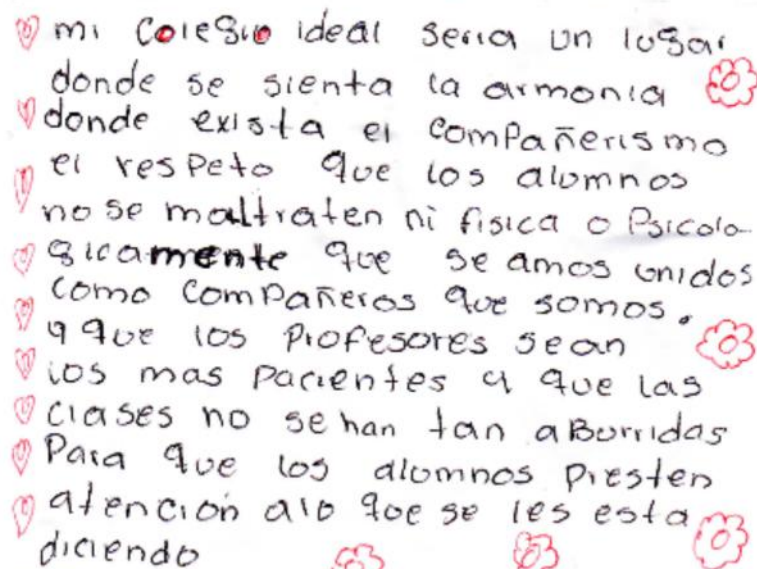 mi colegio ideal seria un lugar
donde se sienta la armonia
donde exista el compañerismo
el respeto que los alumnos
no se maltraten ni fisica o Psicolo-
gicamente que se amos unidos
como compañeros que somos.
y que los Profesores sean
los mas Pacientes y que las
clases no se han tan aBurridas
Para que los alumnos Presten
atención alo que se les esta
diciendo